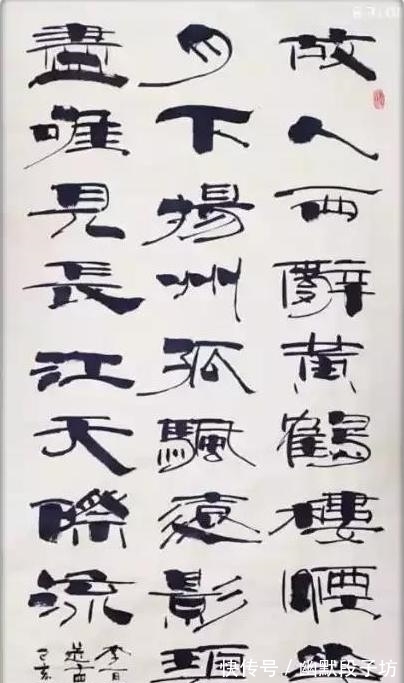 故人西辭黃鶴樓煙
月下揚州孤颿遠影碧
盡唯見長江天際流
李白
己亥
快传号 / 幽默段子坊